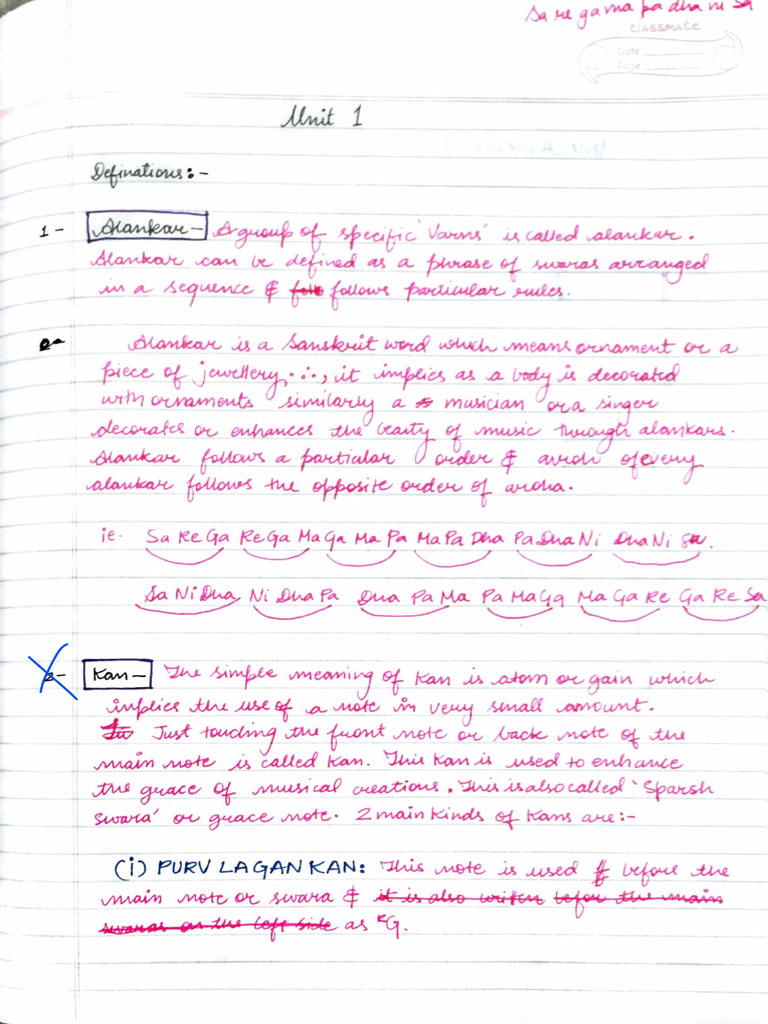 Sa re ga ma pa dha ni sa
CLASSMATE
Date
Page
Unit 1
Definations:-
1- Alankar- A group of specific 'Varns' is called alankar.
Alankar can be defined as a phrase of swaras arranged
in a sequence & follows particular rules.
2- Alankar is a Sanskrit word which means ornament or a
piece of jewellery, ∴, it implies as a body is decorated
with ornaments similarly a musician or a singer
decorates or enhances the beauty of music through alankars.
Alankar follows a particular order & avroh of every
alankar follows the opposite order of aroha.
ie. Sa Re Ga Re Ga Ma Ga Ma Pa Ma Pa Dha Pa Dha Ni Dha Ni Sa.
Sa Ni Dha Ni Dha Pa Dha Pa Ma Pa Ma Ga Ma Ga Re Ga Re Sa
2- Kan- The simple meaning of Kan is atom or gain which
implies the use of a note in very small amount.
Just touching the front note or back note of the
main note is called Kan. This Kan is used to enhance
the grace of musical creations. This is also called 'Sparsh
swara' or grace note. 2 main kinds of Kans are:-
(i) PURV LAGAN KAN: This note is used before the
main note or swara & it is also written befor the main
swaras on the left side as ᴿG.